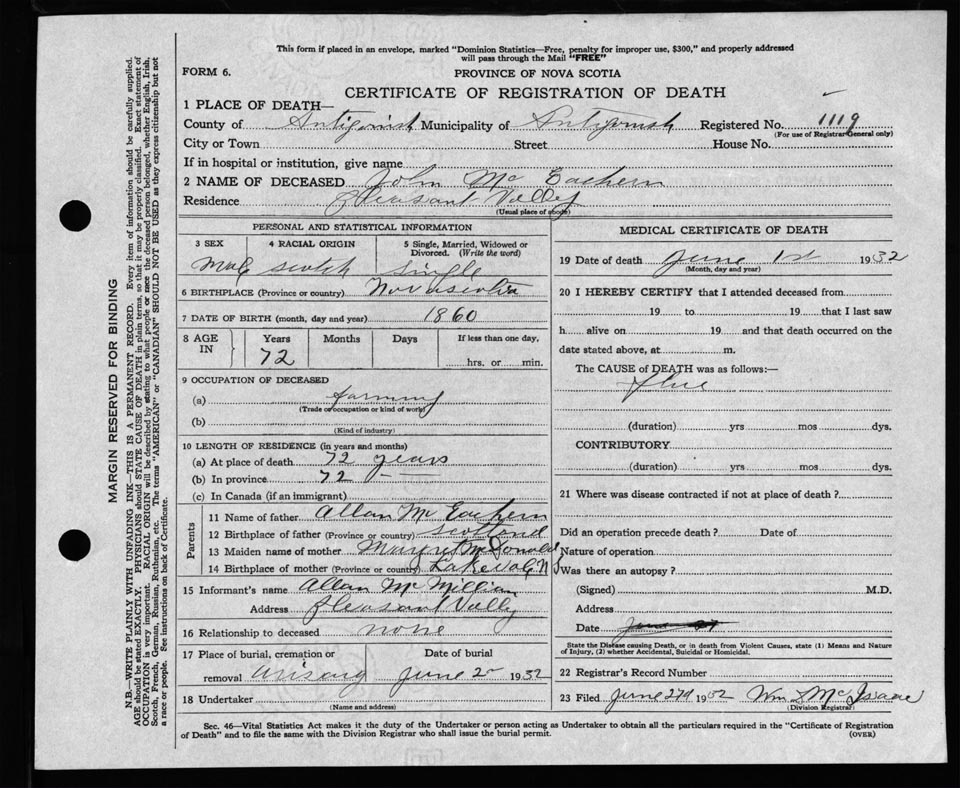 This form if placed in an envelope, marked "Dominion Statistics—Free, penalty for improper use, $300," and properly addressed
will pass through the Mail "FREE"
FORM 6.
PROVINCE OF NOVA SCOTIA
CERTIFICATE OF REGISTRATION OF DEATH
1 PLACE OF DEATH—
County of Antigonish Municipality of Antigonish Registered No. 1119
(For use of Registrar General only)
City or Town Street House No.
If in hospital or institution, give name
2 NAME OF DECEASED John Mc Eachern
Residence Pleasant Valley
(Usual place of abode)
PERSONAL AND STATISTICAL INFORMATION
3 SEX 4 RACIAL ORIGIN 5 Single, Married, Widowed or Divorced. (Write the word)
Male scotch single
6 BIRTHPLACE (Province or country) Novascotia
7 DATE OF BIRTH (month, day and year) 1860
8 AGE IN Years Months Days If less than one day,
72 hrs. or min.
9 OCCUPATION OF DECEASED
(a) farming
(Trade or occupation or kind of work)
(b)
(Kind of industry)
10 LENGTH OF RESIDENCE (in years and months)
(a) At place of death 72 years
(b) In province 72 —
(c) In Canada (if an immigrant)
Parents
11 Name of father Allan Mc Eachern
12 Birthplace of father (Province or country) Scotland
13 Maiden name of mother McDonald
14 Birthplace of mother (Province or country) Lakevale NS
15 Informant's name Allan Mc Millian
Address Pleasant Vally
16 Relationship to deceased none
17 Place of burial, cremation or removal Date of burial
Arisaig June 2 1932
18 Undertaker
(Name and address)
MEDICAL CERTIFICATE OF DEATH
19 Date of death June 1st 1932
(Month, day and year)
20 I HEREBY CERTIFY that I attended deceased from
19 to 19 that I last saw
h alive on 19 and that death occurred on
date stated above, at m.
The CAUSE of DEATH was as follows:—
Flue
(duration) yrs mos dys.
CONTRIBUTORY
(duration) yrs mos dys.
21 Where was disease contracted if not at place of death?
Did an operation precede death? Date of
Nature of operation
Was there an autopsy?
(Signed) M.D.
Address
Date June
State the Disease causing Death, or in death from Violent Causes, state (1) Means and Nature
of Injury, (2) whether Accidental, Suicidal or Homicidal.
22 Registrar's Record Number
23 Filed June 27th 1932 Wm Mc Isaac
(Division Registrar)
Sec. 46—Vital Statistics Act makes it the duty of the Undertaker or person acting as Undertaker to obtain all the particulars required in the "Certificate of Registration
of Death" and to file the same with the Division Registrar who shall issue the burial permit.
(OVER)
MARGIN RESERVED FOR BINDING
N.B.—WRITE PLAINLY WITH UNFADING INK—THIS IS A PERMANENT RECORD. Every item of information should be carefully supplied.
AGE should be stated EXACTLY. PHYSICIANS should STATE CAUSE OF DEATH in plain terms, so that it may be properly classified. Exact statement of
OCCUPATION is very important. RACIAL ORIGIN will be described by stating to what people or race the deceased person belonged, whether English, Irish,
Scotch, French, German, Russian, Ruthenian, etc. The terms "AMERICAN" or "CANADIAN" SHOULD NOT BE USED as they express citizenship but not
a race or people. See instructions on back of Certificate.